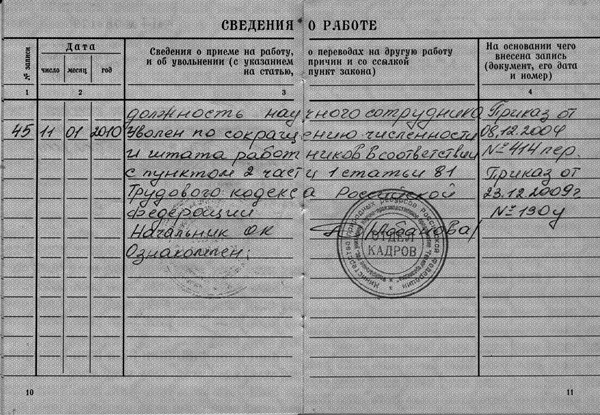 СВЕДЕНИЯ О РАБОТЕ
№ записи
Дата
Сведения о приеме на работу, о переводах на другую работу
и об увольнении (с указанием причин и со ссылкой
на статью, пункт закона)
На основании чего
внесена запись
(документ, его дата
и номер)
число месяц год
1 2 3 4
должность научного сотрудника Приказ от
45 11 01 2010 Уволен по сокращению численности 08.12.2009
и штата работников в соответствии № 414 пер.
с пунктом 2 части 1 статьи 81 Приказ от
Трудового кодекса Российской 23.12.2009г
Федерации № 190у
Начальник ОК
Ознакомлен:
ОТДЕЛ
КАДРОВ
10 11